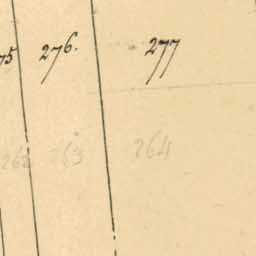 75 276. 277
262 263 264